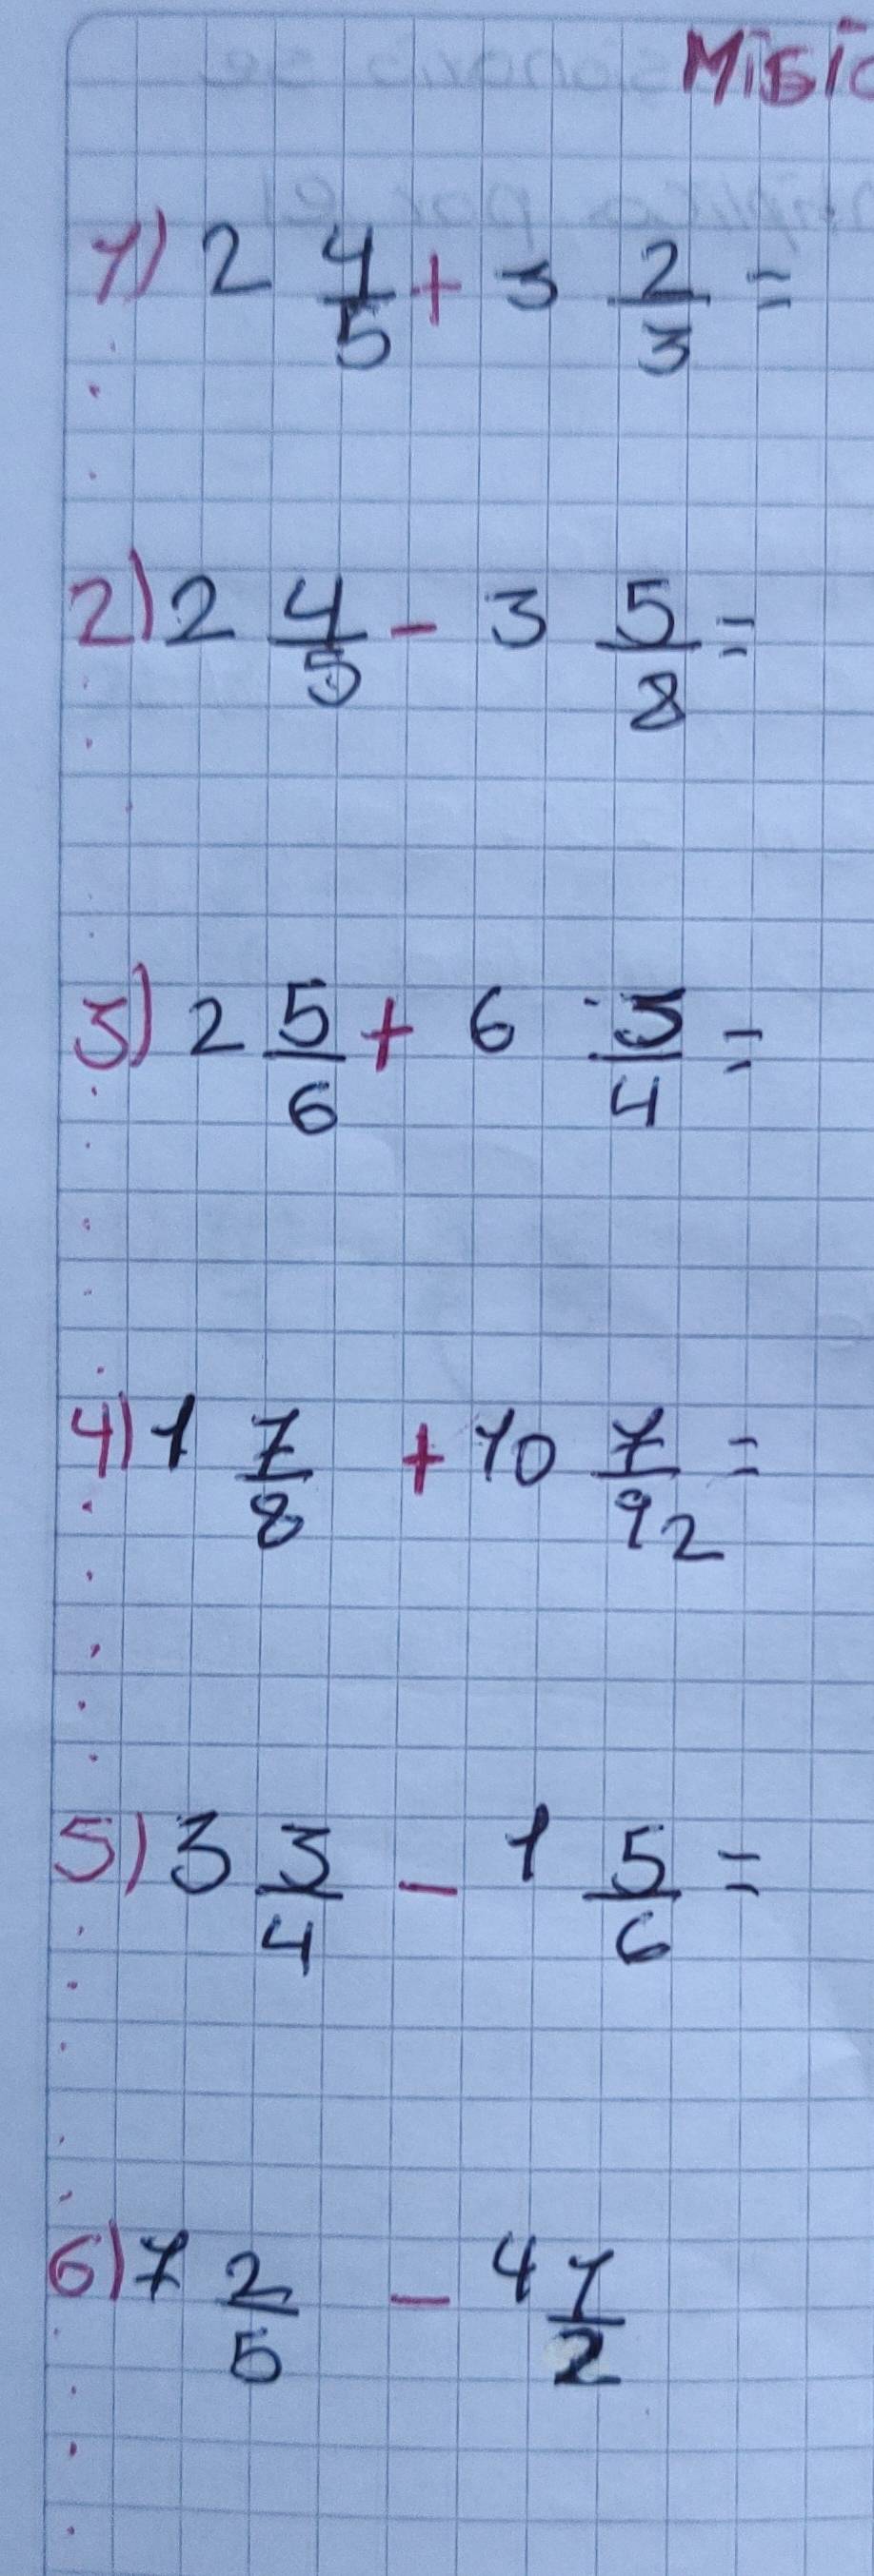 Misi
1) 2 4/5 + 3 2/3 =
2) 2 4/5 - 3 5/8 =
3) 2 5/6 + 6 3/4 =
4) 1 7/8 + 10 7/92 =
5) 3 3/4 - 1 5/6 =
6) 7 2/5 - 4 1/2